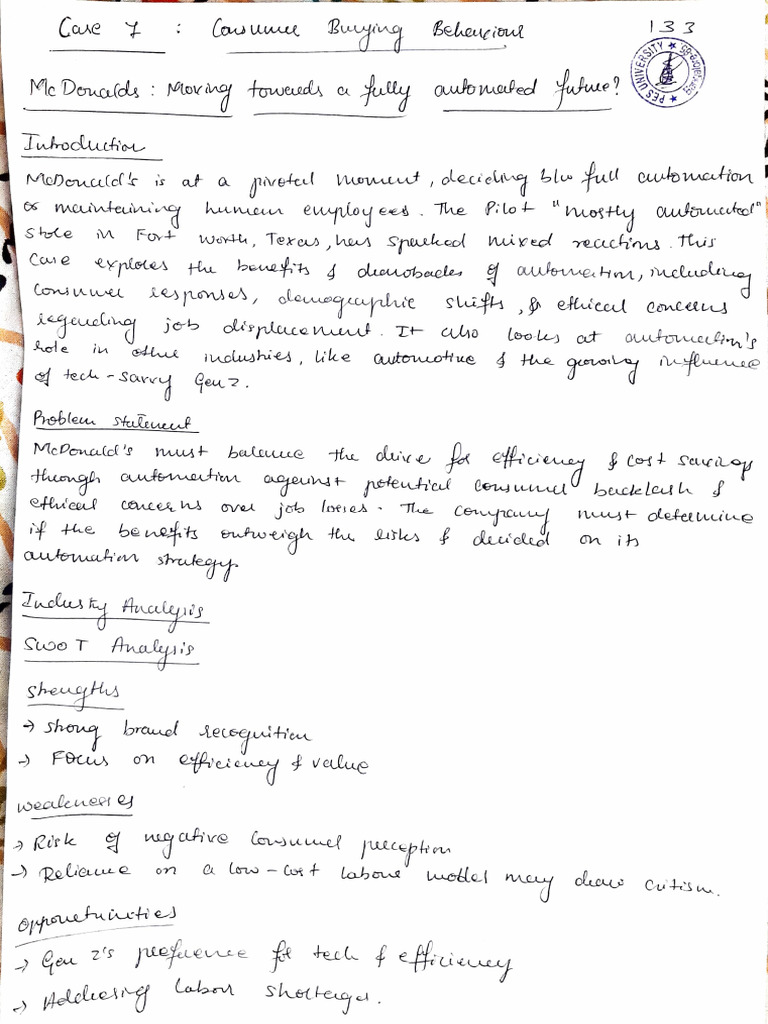 Case 7 : Consumer Buying Behaviour
133
PES UNIVERSITY
McDonalds : Moving towards a fully automated future?
Introduction
McDonald's is at a pivotal moment, deciding b/w full automation
or maintaining human employees. The Pilot "mostly automated"
store in Fort Worth, Texas, has sparked mixed reactions. This
case explores the benefits & drawbacks of automation, including
consumer responses, demographic shifts, & ethical concerns
regarding job displacement. It also looks at automation's
role in other industries, like automotive & the growing influence
of tech-savvy Gen Z.
Problem Statement
McDonald's must balance the drive for efficiency & cost savings
through automation against potential consumer backlash &
ethical concerns over job losses. The company must determine
if the benefits outweigh the risks & decided on its
automation strategy.
Industry Analysis
SWOT Analysis
Strengths
→ Strong brand recognition
→ Focus on efficiency & value
Weaknesses
→ Risk of negative consumer perception
→ Reliance on a low-cost labour model may draw critism.
Opportunities
→ Gen Z's preference for tech & efficiency
→ Addressing labour shortages.